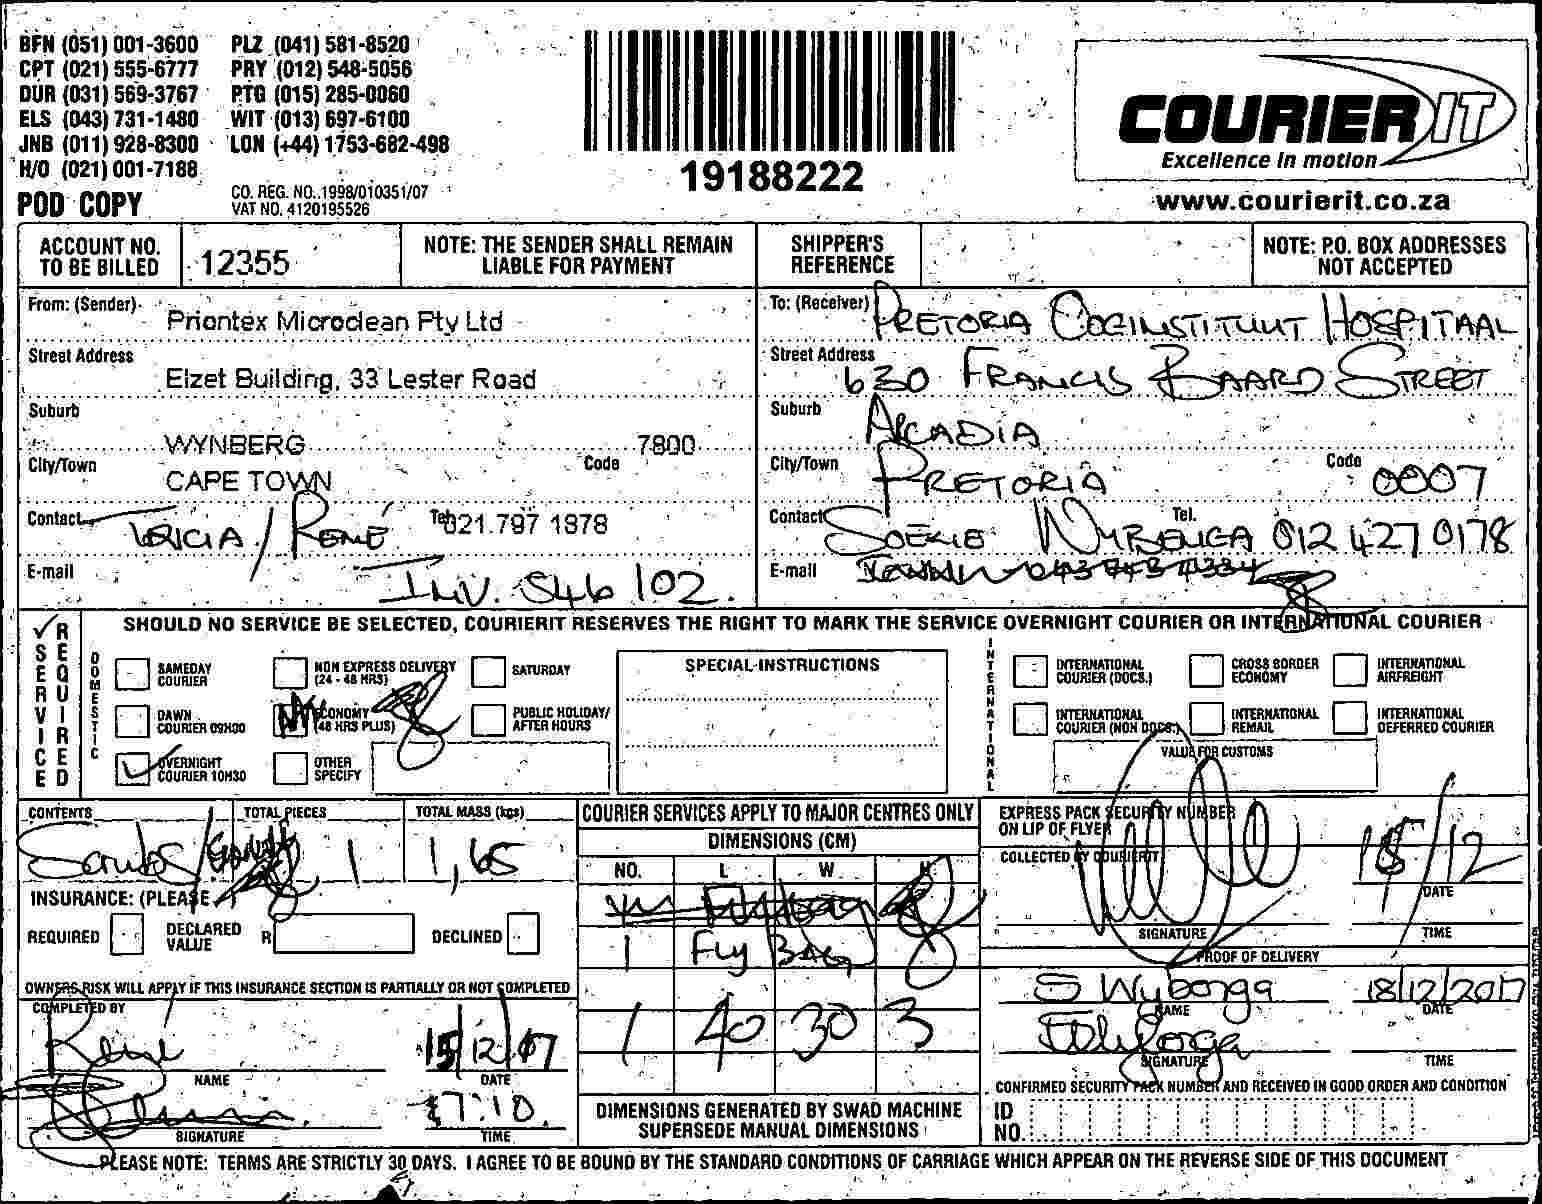 BFN (051) 001-3600 PLZ (041) 581-8520
CPT (021) 555-6777 PRY (012) 548-5056
DUR (031) 569-3767 PTG (015) 285-0060
ELS (043) 731-1480 WIT (013) 697-6100
JNB (011) 928-8300 LON (+44) 1753-682-498
H/O (021) 001-7188
POD COPY
CO. REG. NO. 1998/010351/07
VAT NO. 4120195526
19188222
COURIER IT
Excellence in motion
www.courierit.co.za
ACCOUNT NO. TO BE BILLED
12355
NOTE: THE SENDER SHALL REMAIN LIABLE FOR PAYMENT
SHIPPER'S REFERENCE
NOTE: P.O. BOX ADDRESSES NOT ACCEPTED
From: (Sender) Priontex Microclean Pty Ltd
Street Address Elzet Building, 33 Lester Road
Suburb WYNBERG 7800
City/Town CAPE TOWN Code
Contact TRICIA / RENÉ Tel. 021 797 1378
E-mail INV. 546 102.
To: (Receiver) PRETORIA OOGINSTITUUT HOSPITAAL
Street Address 630 FRANCIS BAARD STREET
Suburb ARCADIA
City/Town PRETORIA Code 0007
Contact SOEKIE WYBENGA Tel. 012 427 0178
E-mail
SERVICE REQUIRED
SHOULD NO SERVICE BE SELECTED, COURIERIT RESERVES THE RIGHT TO MARK THE SERVICE OVERNIGHT COURIER OR INTERNATIONAL COURIER
DOMESTIC
SAMEDAY COURIER
NON EXPRESS DELIVERY (24 - 48 HRS)
SATURDAY
DAWN COURIER 09H00
ECONOMY (48 HRS PLUS)
PUBLIC HOLIDAY/ AFTER HOURS
OVERNIGHT COURIER 10H30
OTHER SPECIFY
SPECIAL INSTRUCTIONS
INTERNATIONAL
INTERNATIONAL COURIER (DOCS.)
CROSS BORDER ECONOMY
INTERNATIONAL AIRFREIGHT
INTERNATIONAL COURIER (NON DOCS.)
INTERNATIONAL REMAIL
INTERNATIONAL DEFERRED COURIER
VALUE FOR CUSTOMS
CONTENTS TOTAL PIECES TOTAL MASS (kgs)
1 1,65
INSURANCE: (PLEASE
REQUIRED DECLARED VALUE R DECLINED
OWNERS RISK WILL APPLY IF THIS INSURANCE SECTION IS PARTIALLY OR NOT COMPLETED
COMPLETED BY
René 15/12/17
NAME DATE
17:10
SIGNATURE TIME
COURIER SERVICES APPLY TO MAJOR CENTRES ONLY
DIMENSIONS (CM)
NO. L W H
1 Fly BAG
1 40 30 3
DIMENSIONS GENERATED BY SWAD MACHINE
SUPERSEDE MANUAL DIMENSIONS
EXPRESS PACK SECURITY NUMBER
ON LIP OF FLYER
COLLECTED BY COURIERIT
15/12
DATE
SIGNATURE TIME
PROOF OF DELIVERY
S Wybenga 18/12/2017
NAME DATE
SIGNATURE TIME
CONFIRMED SECURITY PACK NUMBER AND RECEIVED IN GOOD ORDER AND CONDITION
ID NO.
PLEASE NOTE: TERMS ARE STRICTLY 30 DAYS. I AGREE TO BE BOUND BY THE STANDARD CONDITIONS OF CARRIAGE WHICH APPEAR ON THE REVERSE SIDE OF THIS DOCUMENT